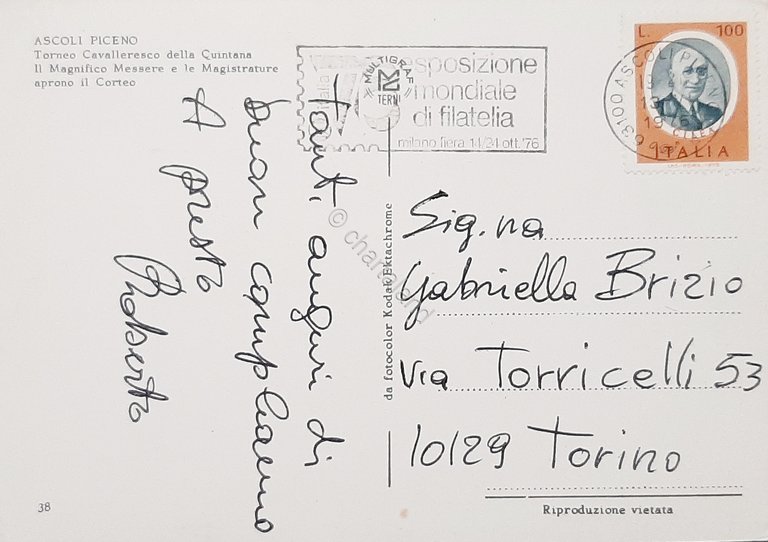 ASCOLI PICENO
Torneo Cavalleresco della Quintana
Il Magnifico Messere e le Magistrature
aprono il Corteo
MULTIGRAF
TERNI
esposizione
mondiale
di filatelia
milano fiera 14/24 ott. '76
63100 ASCOLI
L. 100
ITALIA
Tanti auguri di
buon compleanno
A presto
Roberto
da fotocolor Kodak Ektachrome
© chartaland
Sig.na
Gabriella Brizio
Via Torricelli 53
10129 Torino
38
Riproduzione vietata